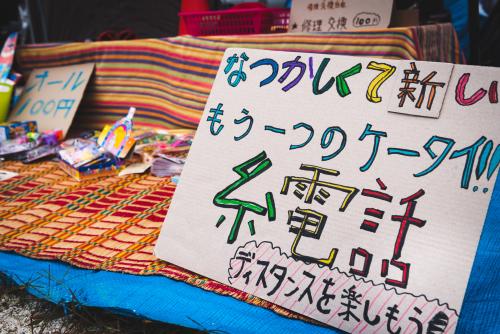 修理 交換 100円
オール
100円
なつかしくて新し
もう一つのケータイ!!!
糸電話
ディスタンスを楽しもう